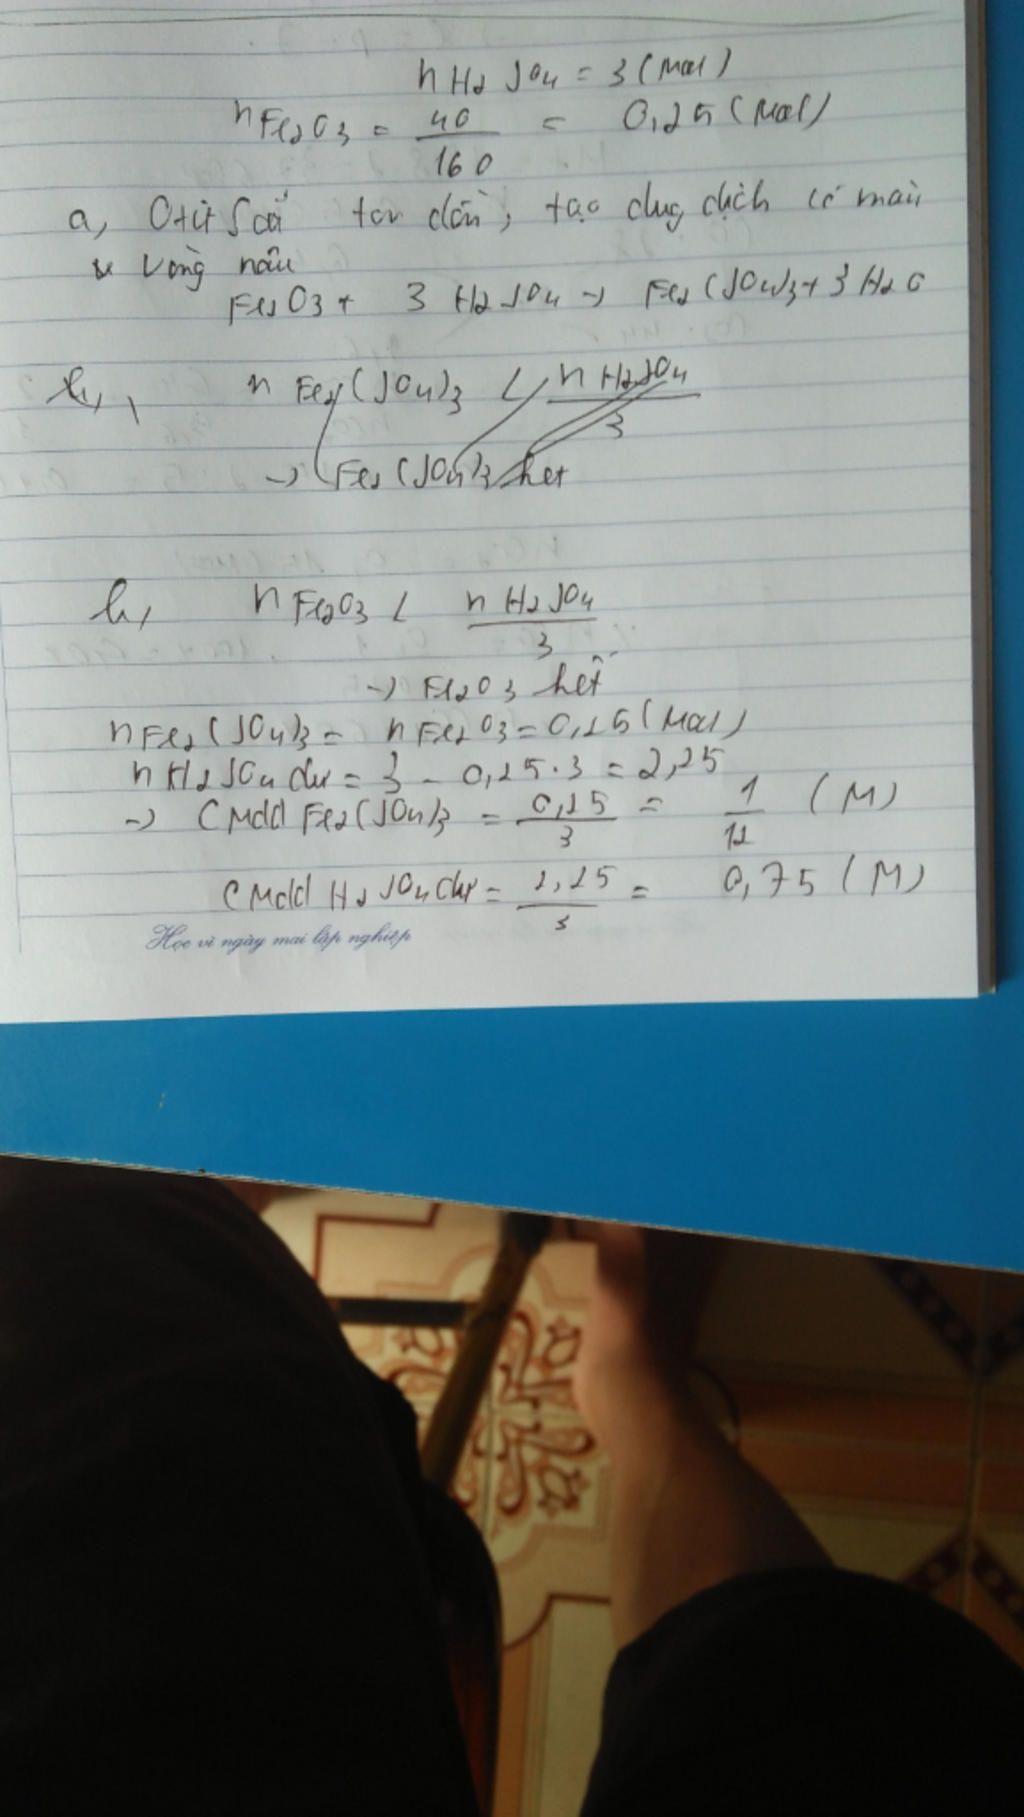 nH2SO4 = 3 (mol)
nFe2O3 = 40/160 = 0,25 (mol)
a, Oxit Sắt tan dần, tạo dung dịch có màu
vàng nâu
Fe2O3 + 3 H2SO4 -> Fe2(SO4)3 + 3 H2O
b, nFe2(SO4)3 < nH2SO4/3
-> Fe2(SO4)3 hết
b, nFe2O3 < nH2SO4/3
-> Fe2O3 hết
nFe2(SO4)3 = nFe2O3 = 0,25 (mol)
nH2SO4 dư = 3 - 0,25.3 = 2,25
-> CMdd Fe2(SO4)3 = 0,25/3 = 1/12 (M)
CMdd H2SO4 dư = 2,25/3 = 0,75 (M)
Học vì ngày mai lập nghiệp